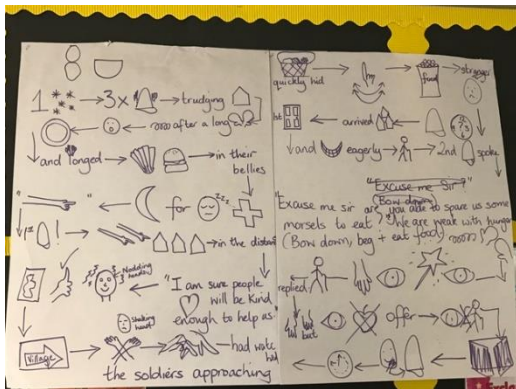 1 3x trudging
after a long
and longed in their
bellies
" " for zzz
1st ! in the distan
Nodding
heads
"I am sure people
will be kind
enough to help us
Shaking
hand
Village had watc
the soldiers approaching
quickly hid food strangers
arrived
and eagerly 2nd spoke
"Excuse me Sir"
Bow down
"Excuse me sir are you able to spare us some
morsels to eat. We are weak with hunger
(Bow down, beg + eat food)
replied
but offer